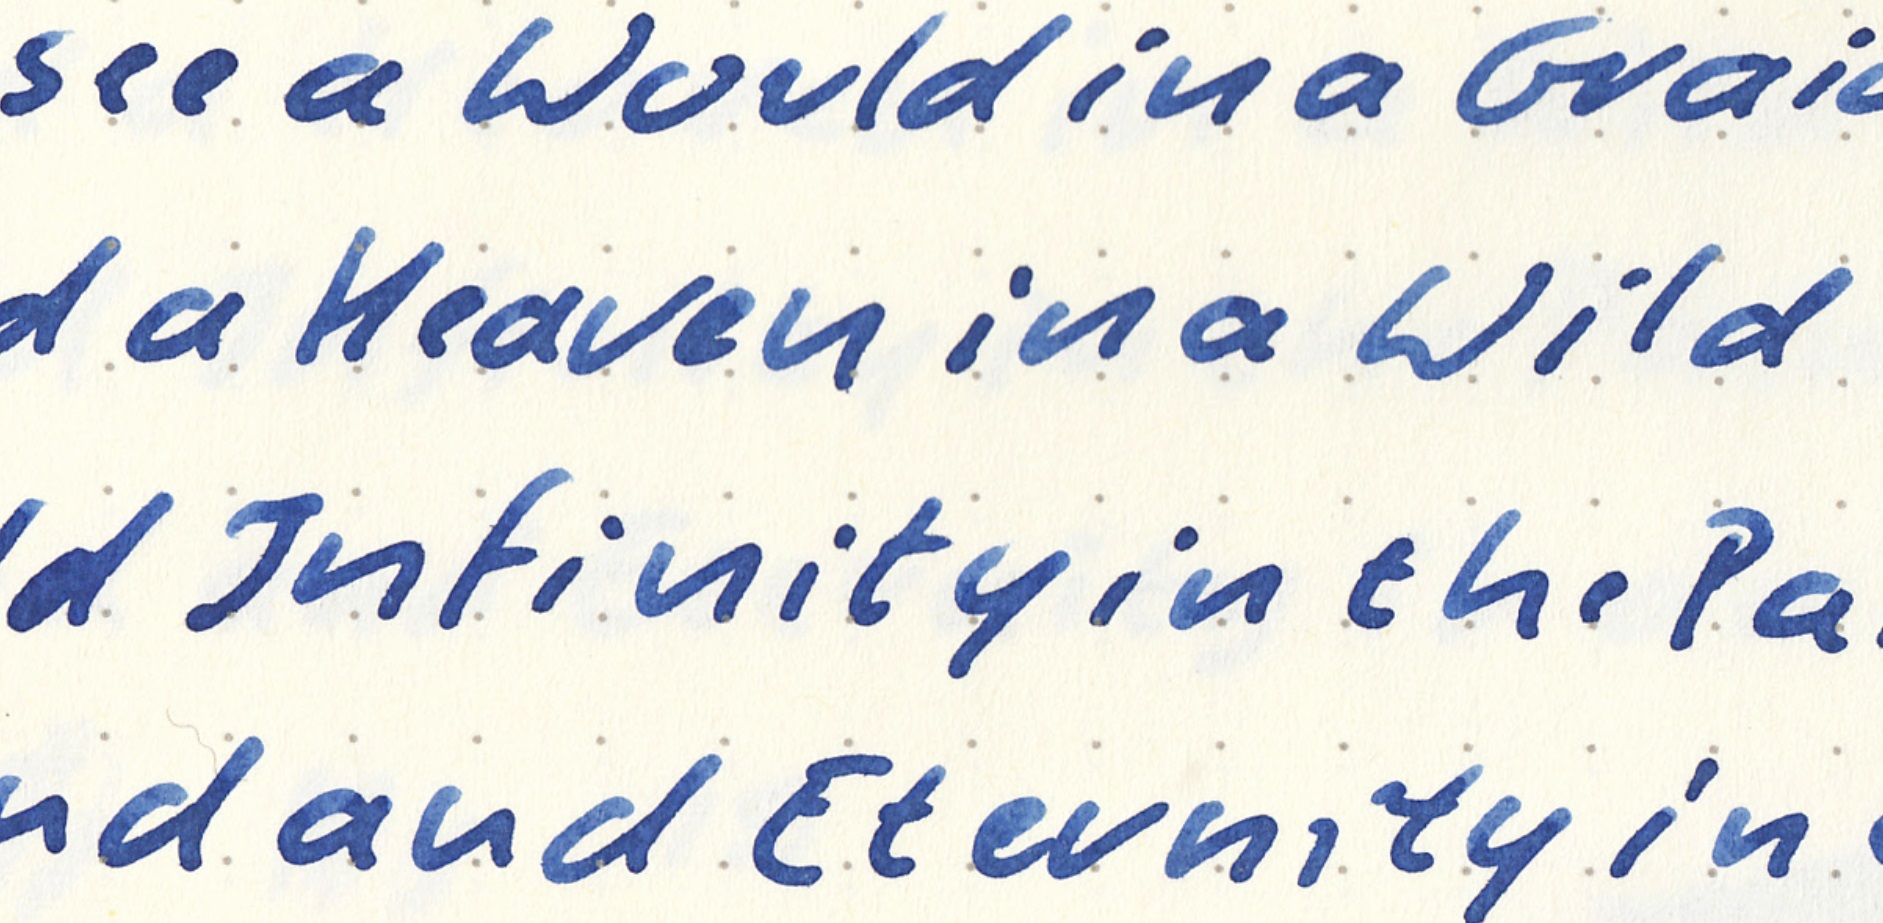 see a World in a Grai
d a Heaven in a Wild
ld Infinity in the Pa
nd and Eternity in